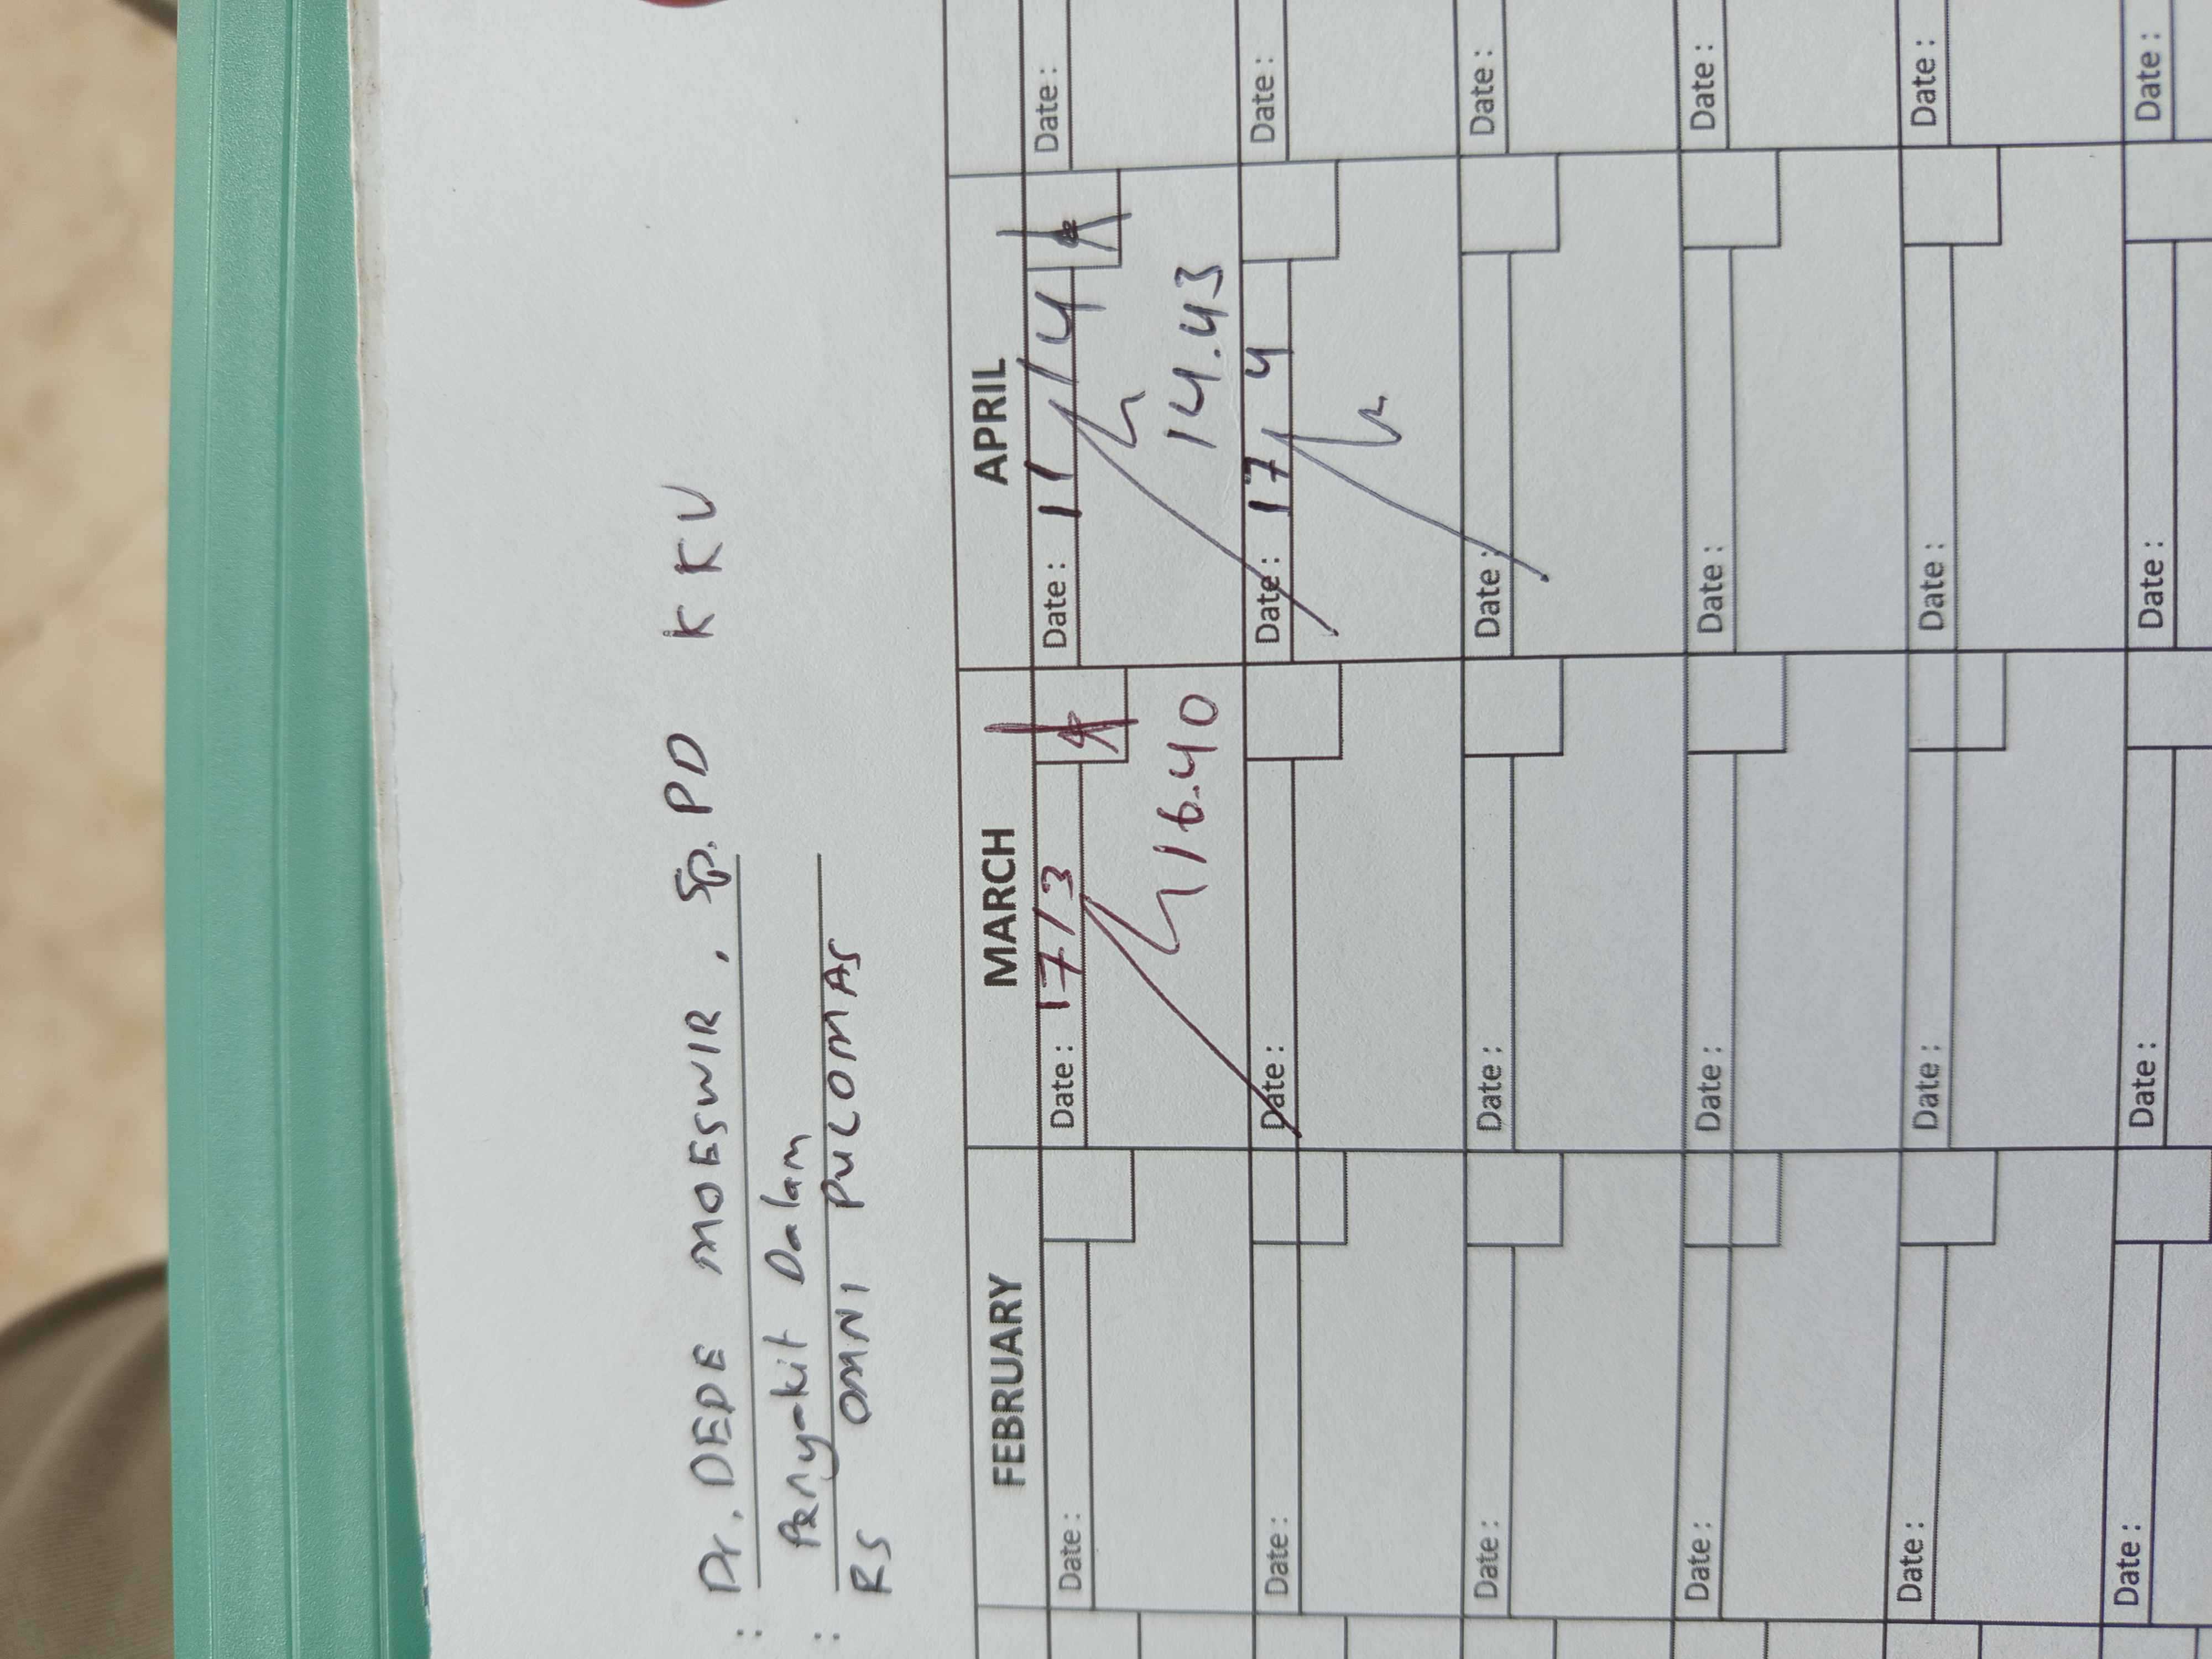 : Dr. DEDE MOESWIR, Sp. PD KKV
: Penyakit Dalam
RS OMNI PULOMAS
FEBRUARY MARCH APRIL
Date : Date : 17/3 Date : 11/4 Date :
16.40 14.43
Date : Date : Date : 17 4 Date :
Date : Date : Date : Date :
Date : Date : Date : Date :
Date : Date : Date : Date :
Date : Date : Date : Date :